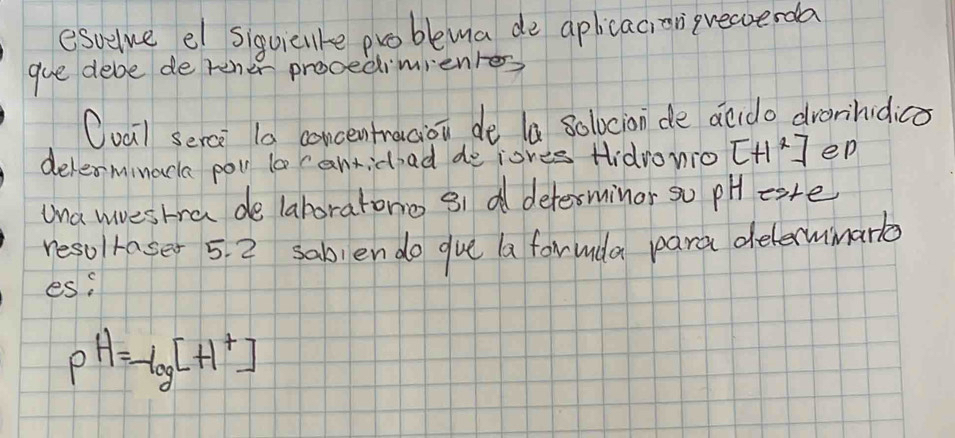 esuelve el siguiente problema de aplicacion, recuerda
que debe de tener procedimientos
Cuál será la concentración de la solucion de ácido
determinada por la cantidad de iones Hidronio [H⁺] en
una muestra de laboratorio si al determinar su pH este
resultaser 5.2 sabiendo que la formula para determinarlo
es:
pH=-log[H⁺]